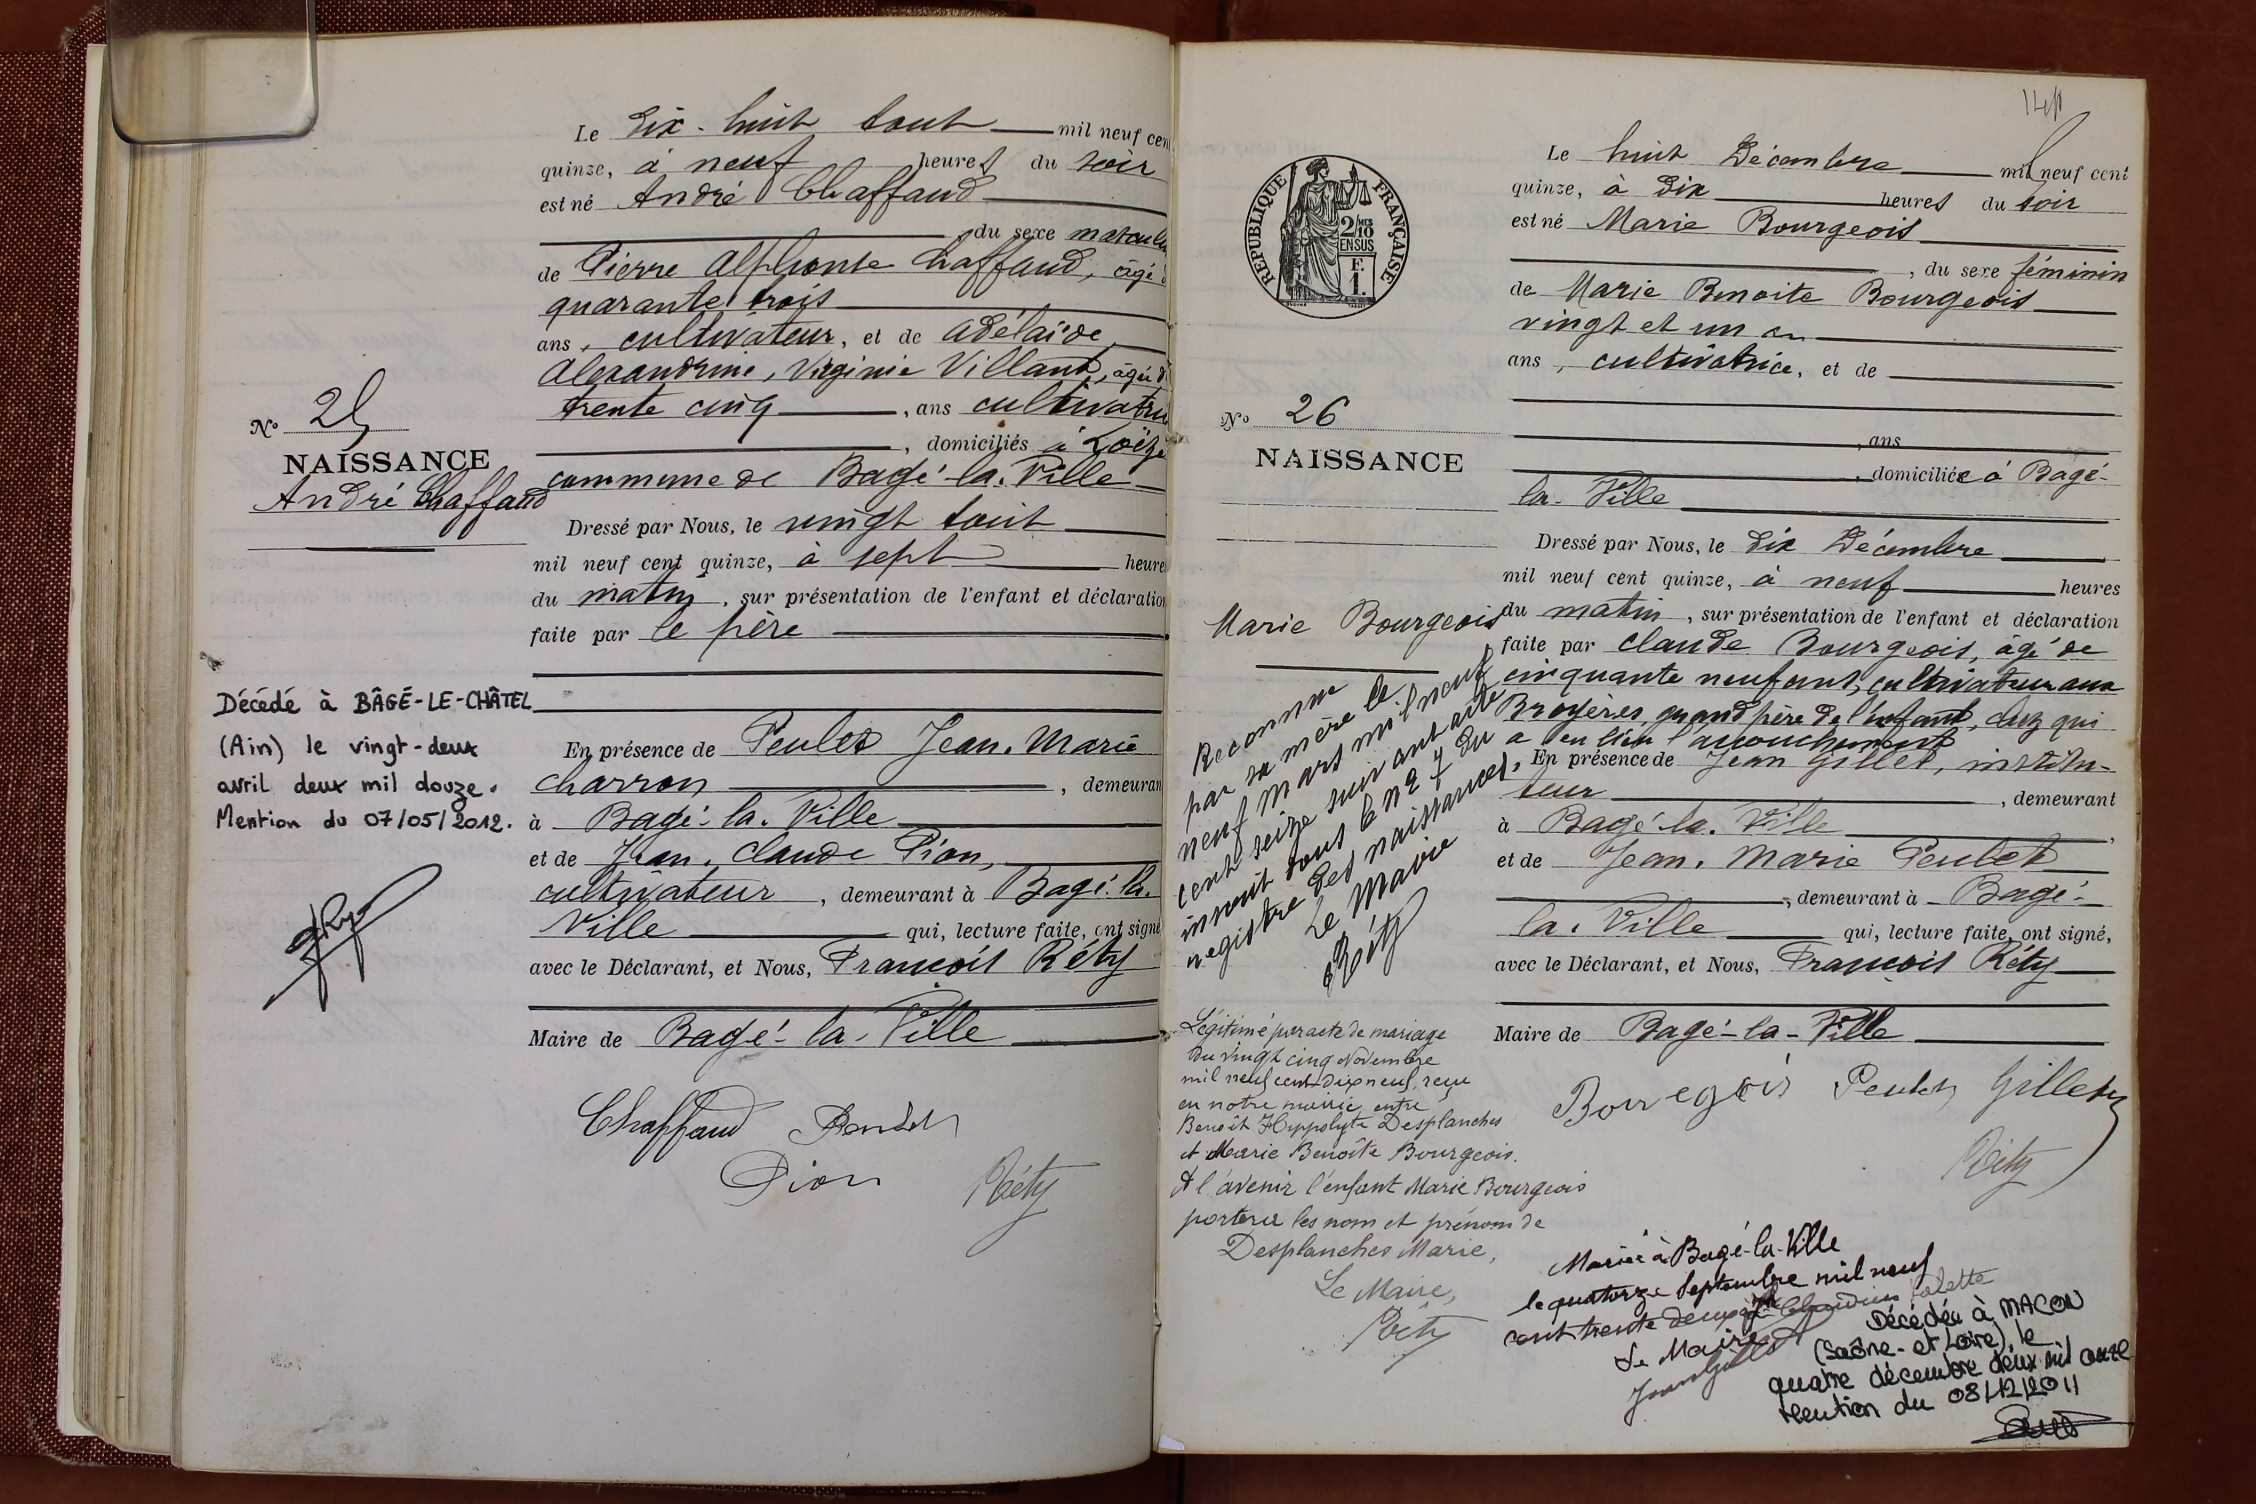 Le dix-huit Août mil neuf cen
quinze, à neuf heures du soir
est né André Chaffaud
, du sexe masculin
de Pierre Alphonse Chaffaud, âgé d
quarante trois
ans, cultivateur, et de Adélaïde
Alexandrine, Virginie Villand, âgée d
trente cinq, ans cultivatri
, domiciliés à Loëze
commune de Bagé-la-Ville
Nº 25
NAISSANCE
André Chaffaud
Dressé par Nous, le vingt Août
mil neuf cent quinze, à sept heures
du matin, sur présentation de l'enfant et déclaration
faite par le père
Décédé à BÂGÉ-LE-CHÂTEL
(Ain) le vingt-deux
avril deux mil douze.
Mention du 07/05/2012.
En présence de Peulet Jean-Marie
charron, demeuran
à Bagé-la-Ville
et de Jean-Claude Pion,
cultivateur, demeurant à Bagé-la-
Ville qui, lecture faite, ont signé
avec le Déclarant, et Nous, François Réty
Maire de Bagé-la-Ville
Chaffaud Peulet
Pion Réty
RÉPUBLIQUE FRANÇAISE
2/10
EN SUS
F.
1.
Le huit Décembre mil neuf cent
quinze, à dix heures du soir
est né Marie Bourgeois
, du sexe féminin
de Marie Benoite Bourgeois
vingt et un an
ans, cultivatrice, et de
, ans
, domiciliée à Bagé-
la-Ville
Nº 26
NAISSANCE
Marie Bourgeois
Dressé par Nous, le dix Décembre
mil neuf cent quinze, à neuf heures
du matin, sur présentation de l'enfant et déclaration
faite par Claude Bourgeois, âgé de
cinquante neuf ans, cultivateur aux
Broyères, grand père de l'enfant, chez qui
a eu lieu l'accouchement
En présence de Jean Gillet, institu-
teur, demeurant
à Bagé-la-Ville,
et de Jean-Marie Peulet
, demeurant à Bagé-
la-Ville qui, lecture faite, ont signé,
avec le Déclarant, et Nous, François Réty
Maire de Bagé-la-Ville
Bourgeois Peulet Gillet
Réty
Reconnue
par sa mère le
neuf mars mil neuf
cent seize suivant acte
inscrit sous le nº 7 du
registre des naissances.
Le Maire
Réty
Légitimé par acte de mariage
du vingt cinq Novembre
mil neuf cent dix neuf, reçu
en notre mairie entre
Benoît Hippolyte Desplanches
et Marie Benoîte Bourgeois.
A l'avenir l'enfant Marie Bourgeois
portera les nom et prénom de
Desplanches Marie,
Le Maire,
Réty
Mariée à Bagé-la-Ville
le quatorze Septembre mil neuf
cent trente deux
Le Maire
Décédée à MACON
(Saône-et-Loire) le
quatre décembre deux mil onze
Mention du 08/12/2011